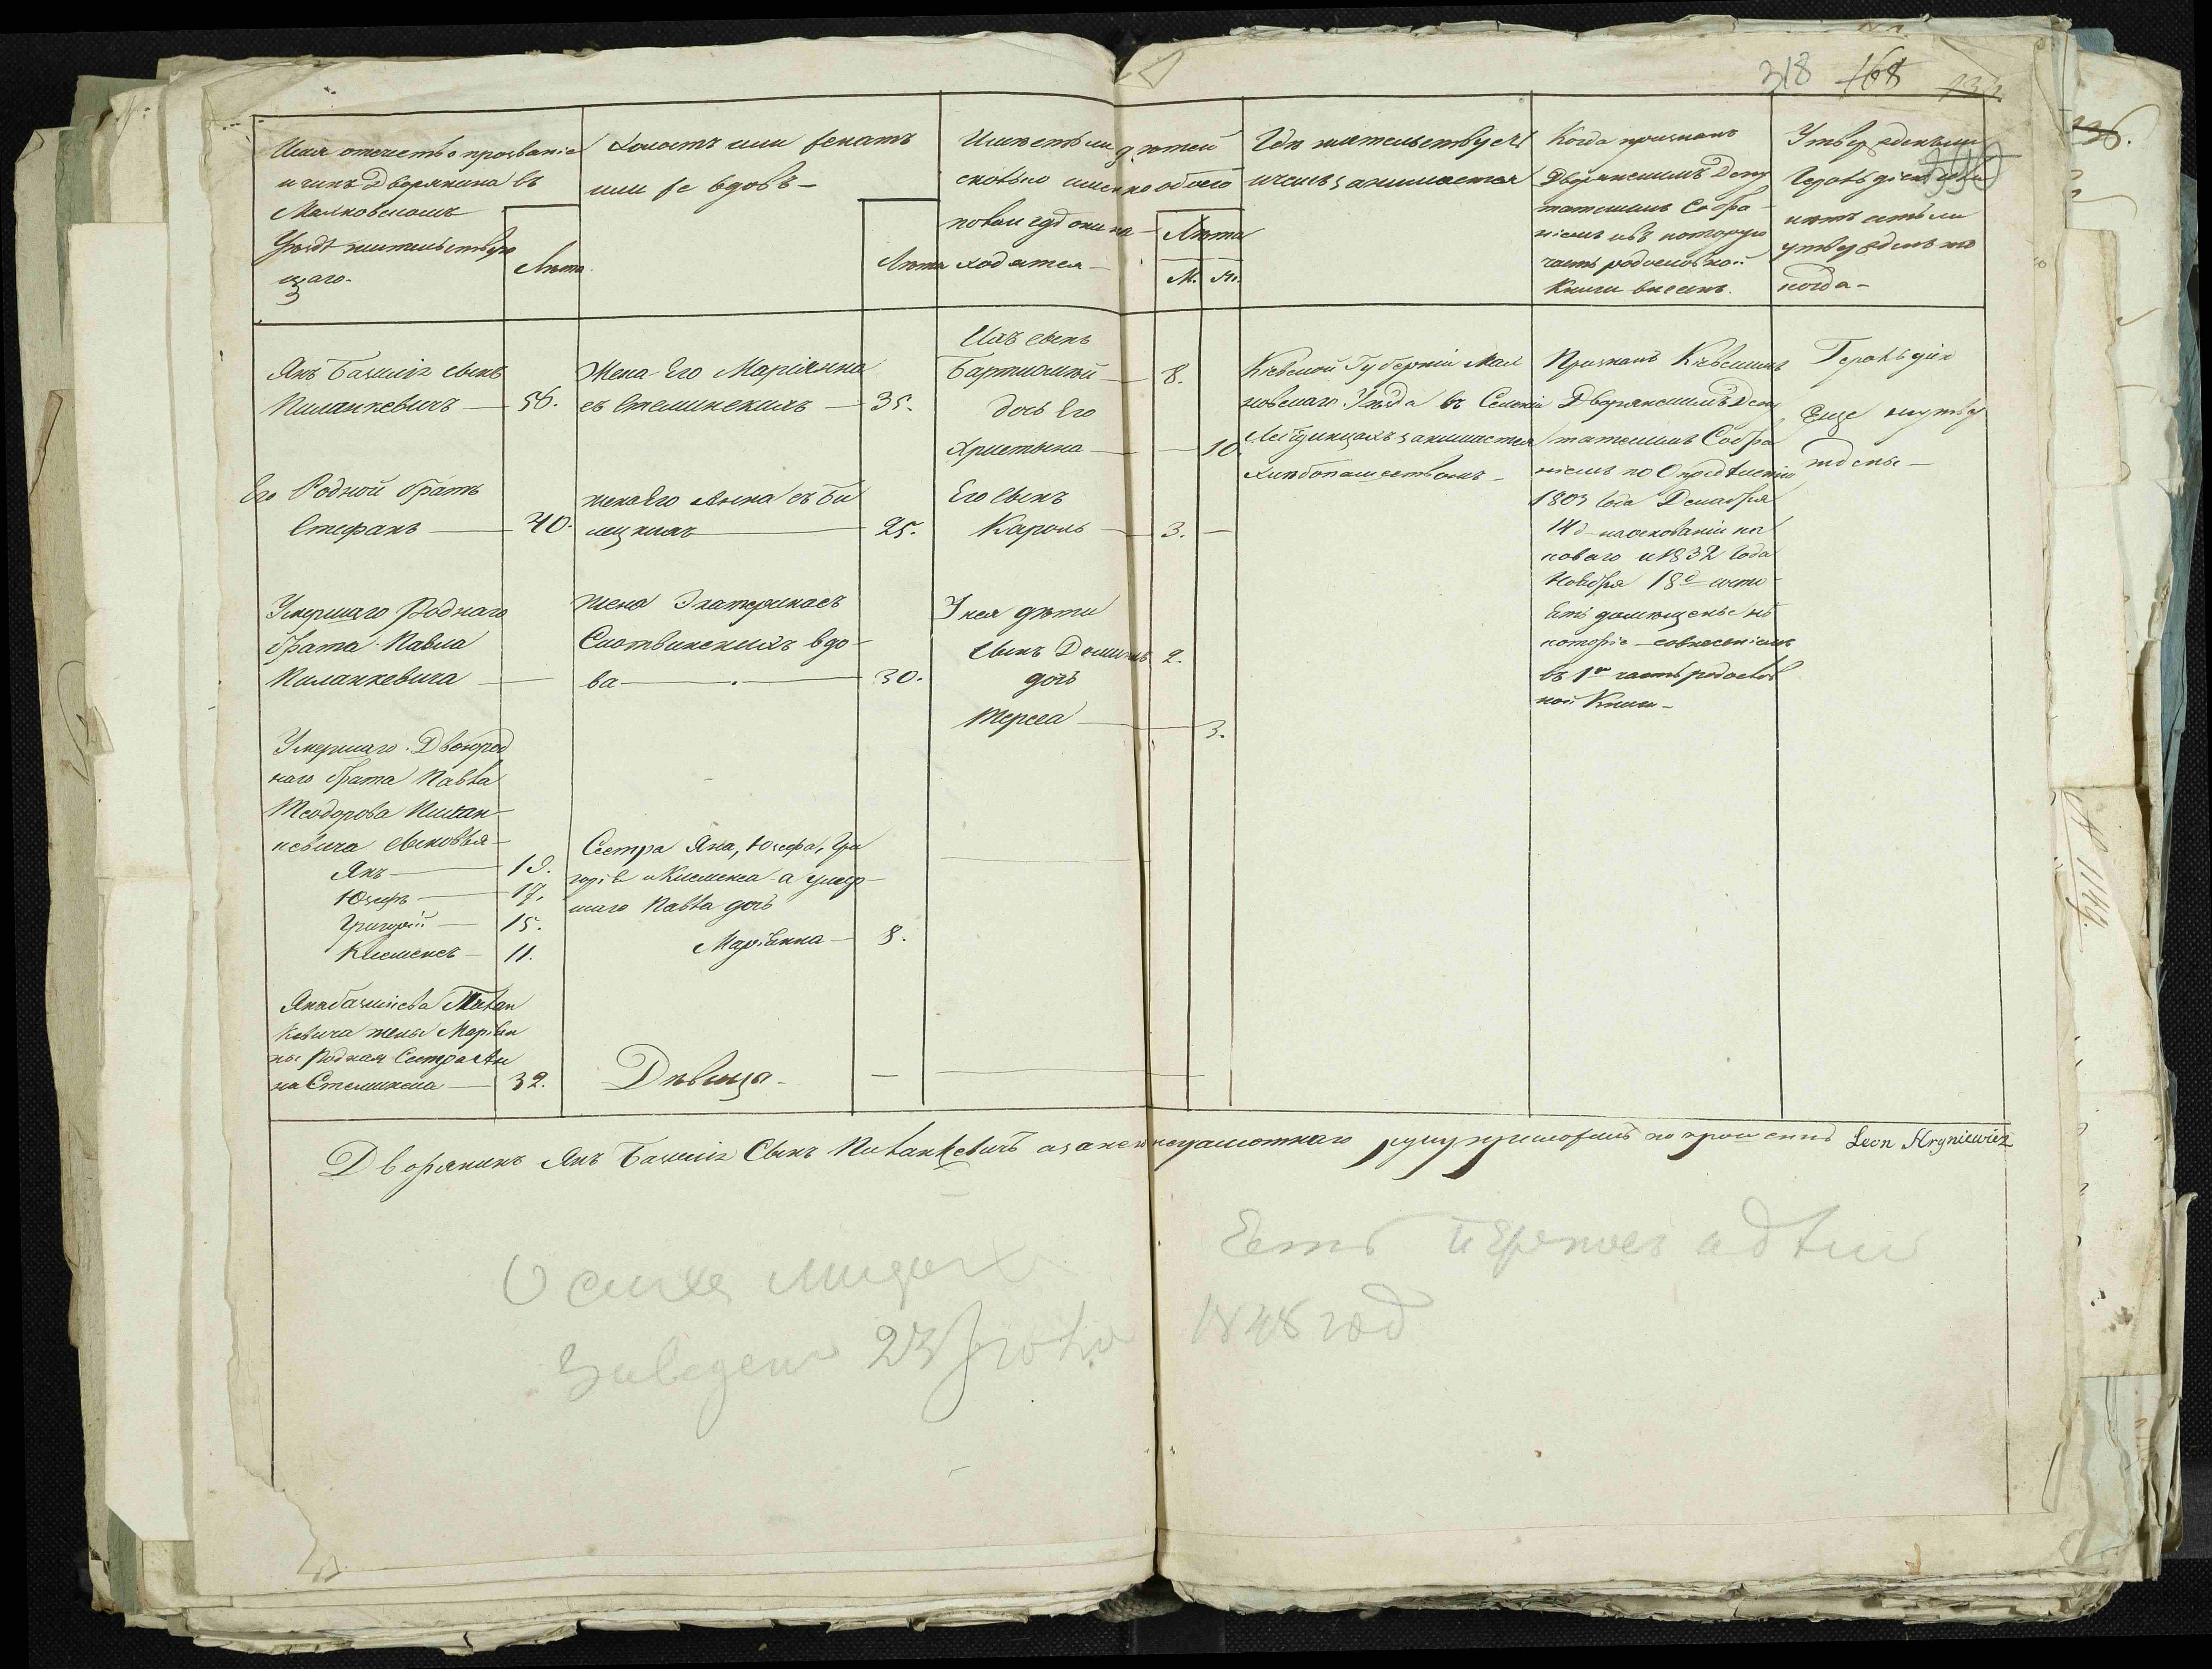 318 168
Имя отечество прозваніе
и чинъ Дворянина въ
Махновскомъ
Уѣздѣ жительствую
щаго.
Лѣта.
Холостъ или женатъ
или же вдовъ –
Лѣта
Имѣетъ ли дѣтей
сколько именно обоего
пола и гдѣ они на-
ходятся –
Лѣта
М. Ж.
Гдѣ жительствуетъ
и чемъ занимается
Когда признанъ
Дворянскимъ Депу
татскимъ Собра-
ніемъ и въ которую
часть родословной
Книги внесенъ.
Утвержденъ ли
Герольдіею или
нѣтъ естьли
утвержденъ то
когда –
Янъ Базилія сынъ
Пиланкевичъ — 56.
Жена Его Маріянна
съ Стемпскихъ — 35.
Ихъ сынъ
Бартломѣй — 8.
дочь Его
Христина — 10.
Кіевской Губерніи Мах
новскаго Уѣзда въ Селеніи
занимается
хлѣбопашествомъ –
Признанъ Кіевскимъ
Дворянскимъ Депу
татскимъ Собра
ніемъ по Опредѣленію
1803 года Декабря
14д на основаніи ка
коваго и 1832 года
Ноября 18д состо
въ 1ю часть родослов
ной Книги –
Герольдіи
Еще неутвер
ждены –
Его Родной братъ
Стефанъ — 40.
жена Его Анна съ Би
лецкихъ — 25.
Его сынъ
Кароль — 3. —
Умершаго Роднаго
брата Павла
Пиланкевича —
жена Екатерина съ
Слотвинскихъ вдо-
ва — 30.
У нея дѣти
сынъ Доминикъ 2.
дочь
Тереса — 3.
Умершаго Двоюрод
наго брата Павла
Теодорова Пилан-
кевича сыновья –
Янъ — 19.
Юзефъ — 17.
Григорій — 15.
Клеменсъ — 11.
Сестра Яна, Юзефа, Гри
горія и Клеменса а умер-
шаго Павла дочь
Маріанна — 8.
Яна Базиліева Пилан
кевича жены Маріан
ны Родная Сестра Ан
на Стемпская — 32.
Дѣвица –
Дворянинъ Янъ Базилія Сынъ Пиланкевичъ а за него неграмотнаго руку приложилъ по прошенію Leon Hryniewicz
Заведено 23
Есть
1848 год
№ 1144.